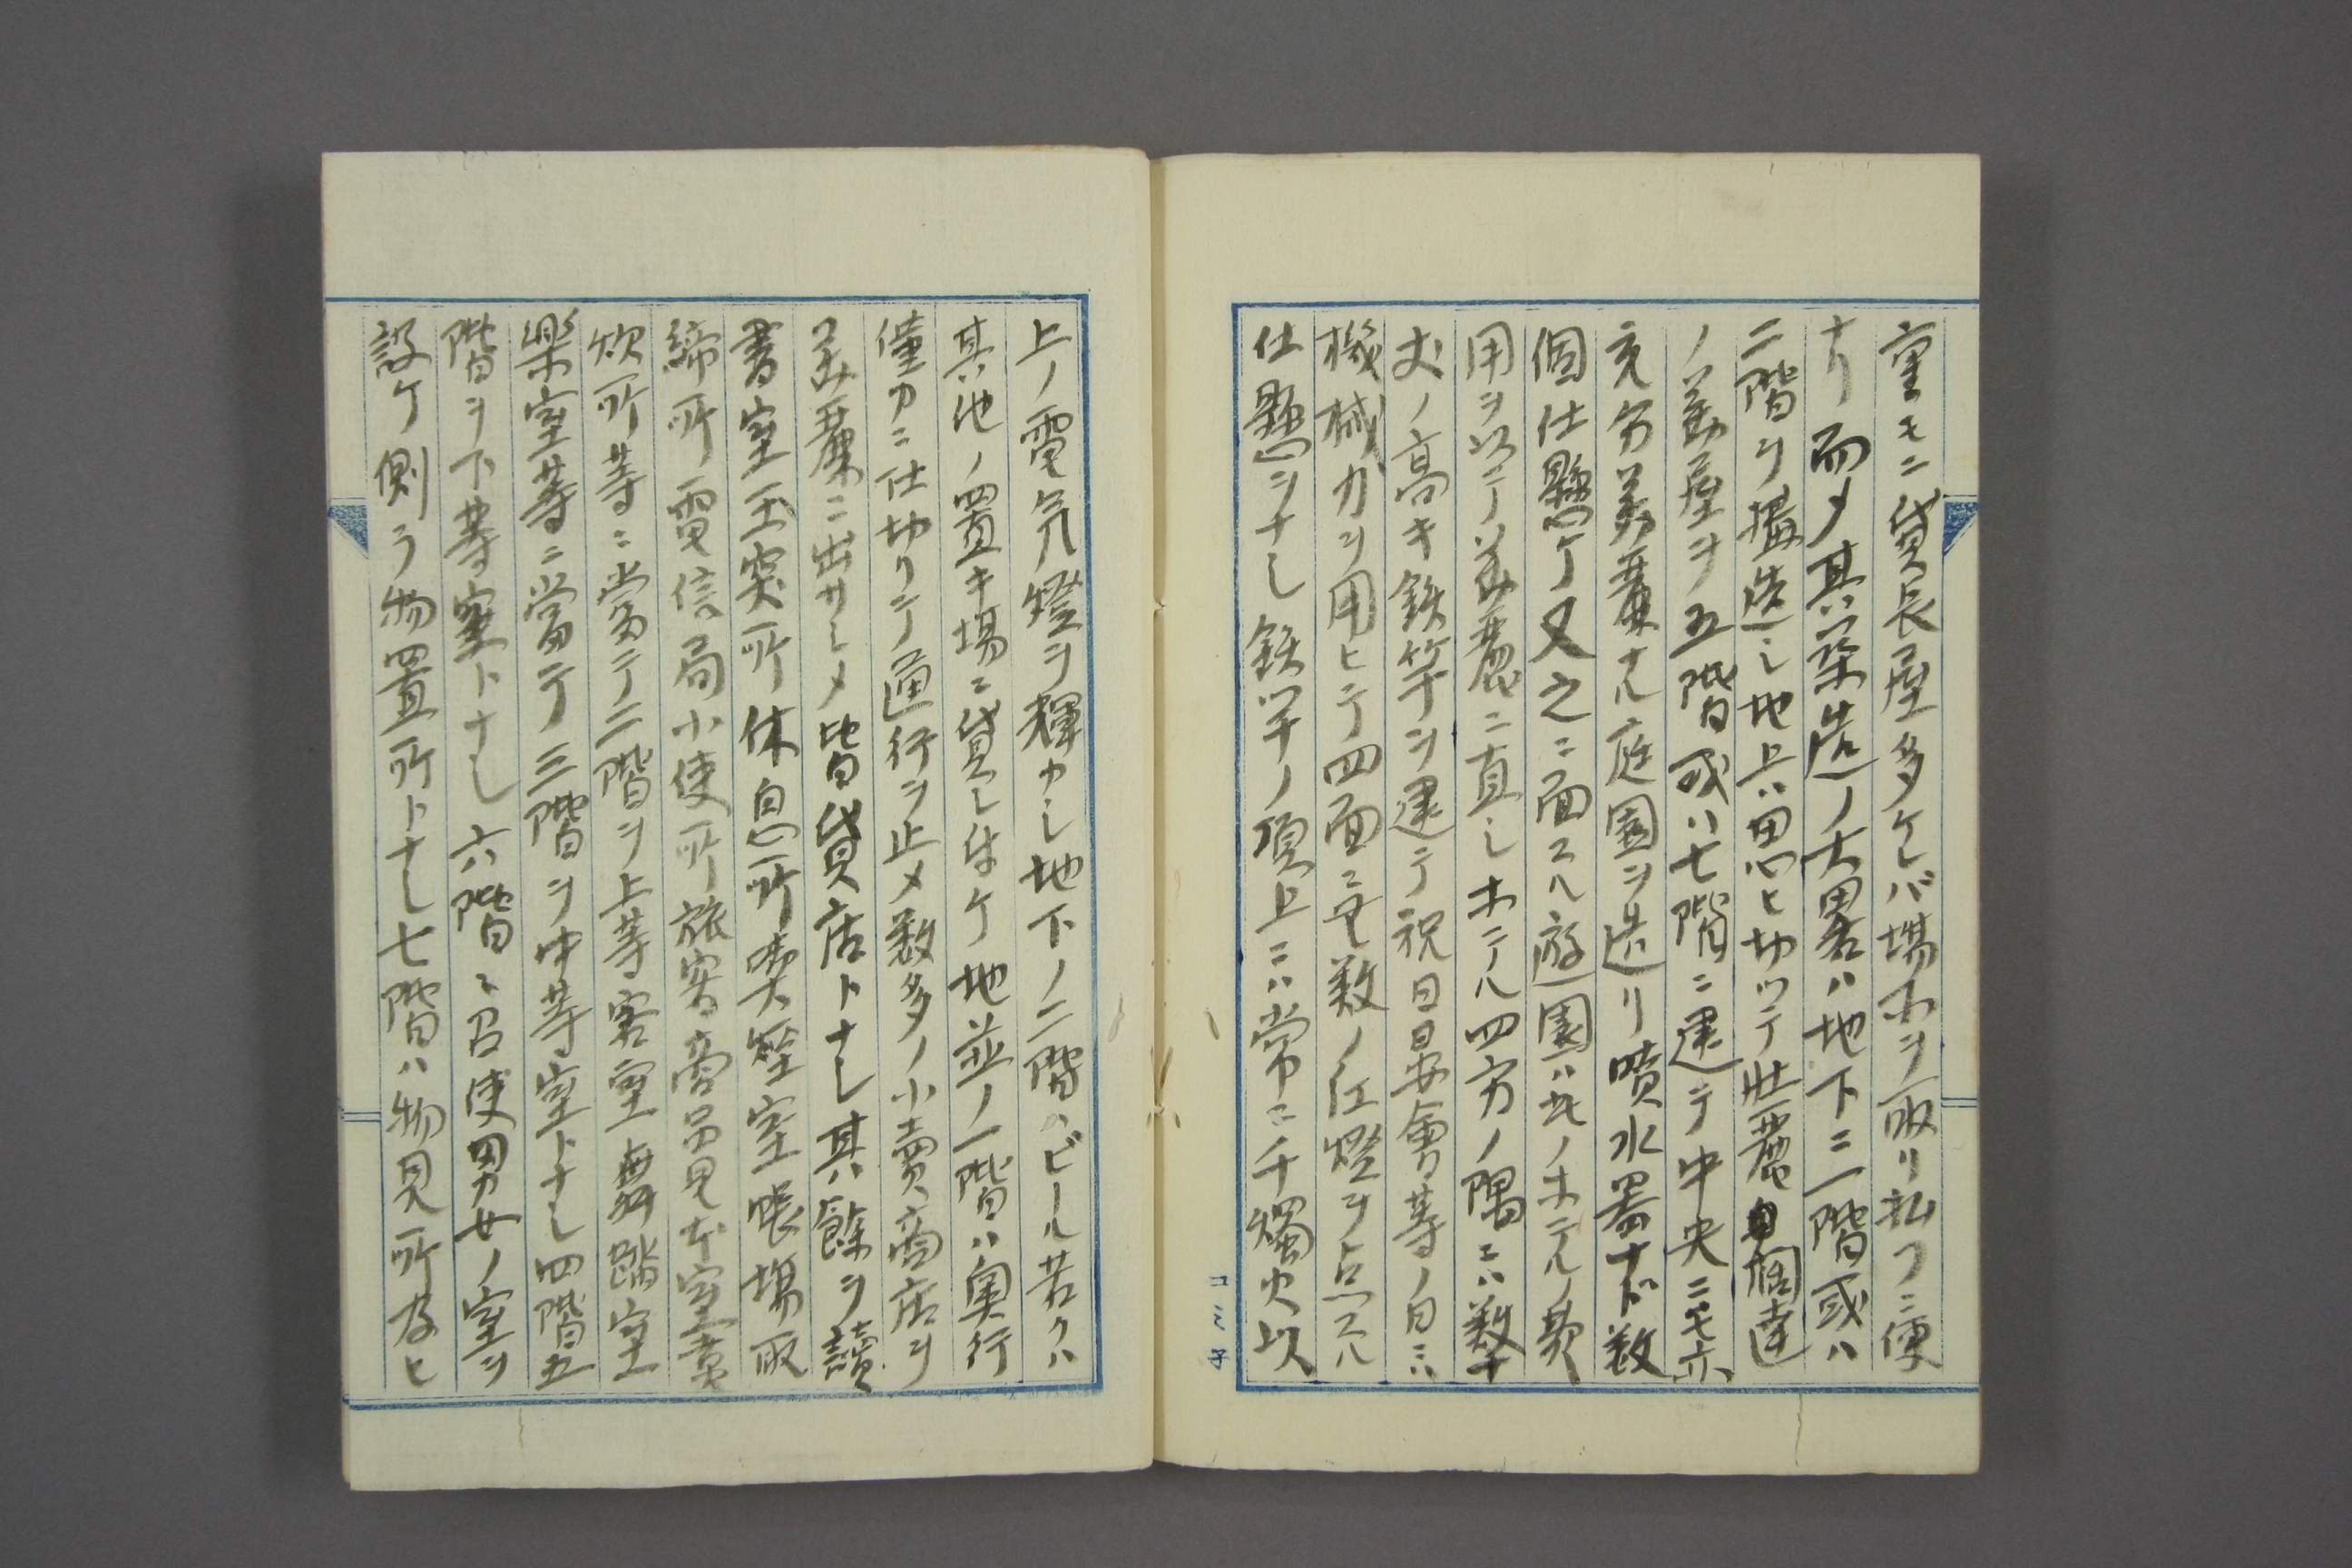 重モニ貸長屋多ケレバ場所ヲ取リ払フニ便
ナリ而メ其築造ノ大畧ハ地下ニ一階或ハ
二階ヲ搵造シ地上ハ思ヒ切ツテ壮麗濶達
ノ美屋ヲ五階或ハ七階ニ建テ中央ニモ亦
充分美麗ナル庭園ヲ造リ噴水器ナド数
個仕懸ケ又之ニ面スル遊園ハ此ノホテル費
用ヲ以テ美麗ニ直シホテル四方ノ隅ニハ数十
丈ノ高キ鉄竿ヲ建テ祝日晏會等ノ日ニハ
機械力ヲ用ヒテ四面ニ無数ノ红燈ヲ点スル
仕懸ヲナシ鉄竿ノ頂上ニハ常ニ千燭火以
上ノ電気燈ヲ輝カシ地下ノ二階ハビール若クハ
其他ノ置キ場ニ貸シ付ケ地並ノ一階ハ奥行
僅カニ仕切リテ通行ヲ止メ数多ノ小賣商店ヲ
美麗ニ出サシメ皆貸店トナシ其餘ヲ讀
書室玉突所休息所喫煙室帳場取
締所電信局小使所旅客商品見本室
炊所等ニ當テ二階ヲ上等客室舞踏室
樂室等ニ當テ三階ヲ中等室トナシ四階五
階ヲ下等室トナシ六階ニ召使男女ノ室ヲ
設ケ側ラ物置所トナシ七階ハ物見所及ヒ